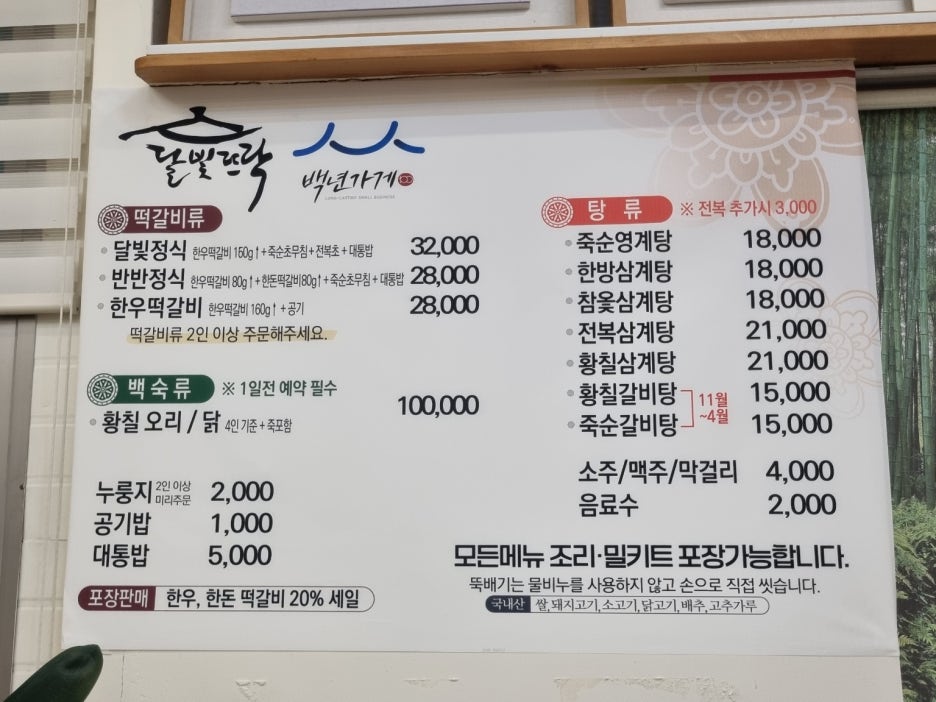 달빛뜨락
백년가게
LONG-LASTING SMALL BUSINESS
떡갈비류
달빛정식 한우떡갈비 150g↑+죽순초무침+전복초+대통밥 32,000
반반정식 한우떡갈비 80g↑+한돈떡갈비80g↑+죽순초무침+대통밥 28,000
한우떡갈비 한우떡갈비 160g↑ +공기 28,000
떡갈비류 2인 이상 주문해주세요.
백숙류 ※ 1일전 예약 필수
황칠 오리 / 닭 4인 기준 + 죽포함 100,000
누룽지 2인 이상 미리주문 2,000
공기밥 1,000
대통밥 5,000
포장판매 한우, 한돈 떡갈비 20% 세일
탕 류 ※ 전복 추가시 3,000
죽순영계탕 18,000
한방삼계탕 18,000
참옻삼계탕 18,000
전복삼계탕 21,000
황칠삼계탕 21,000
황칠갈비탕 15,000
죽순갈비탕 15,000
11월
~4월
소주/맥주/막걸리 4,000
음료수 2,000
모든메뉴 조리·밀키트 포장가능합니다.
뚝배기는 물비누를 사용하지 않고 손으로 직접 씻습니다.
국내산 쌀, 돼지고기, 소고기, 닭고기, 배추, 고추가루